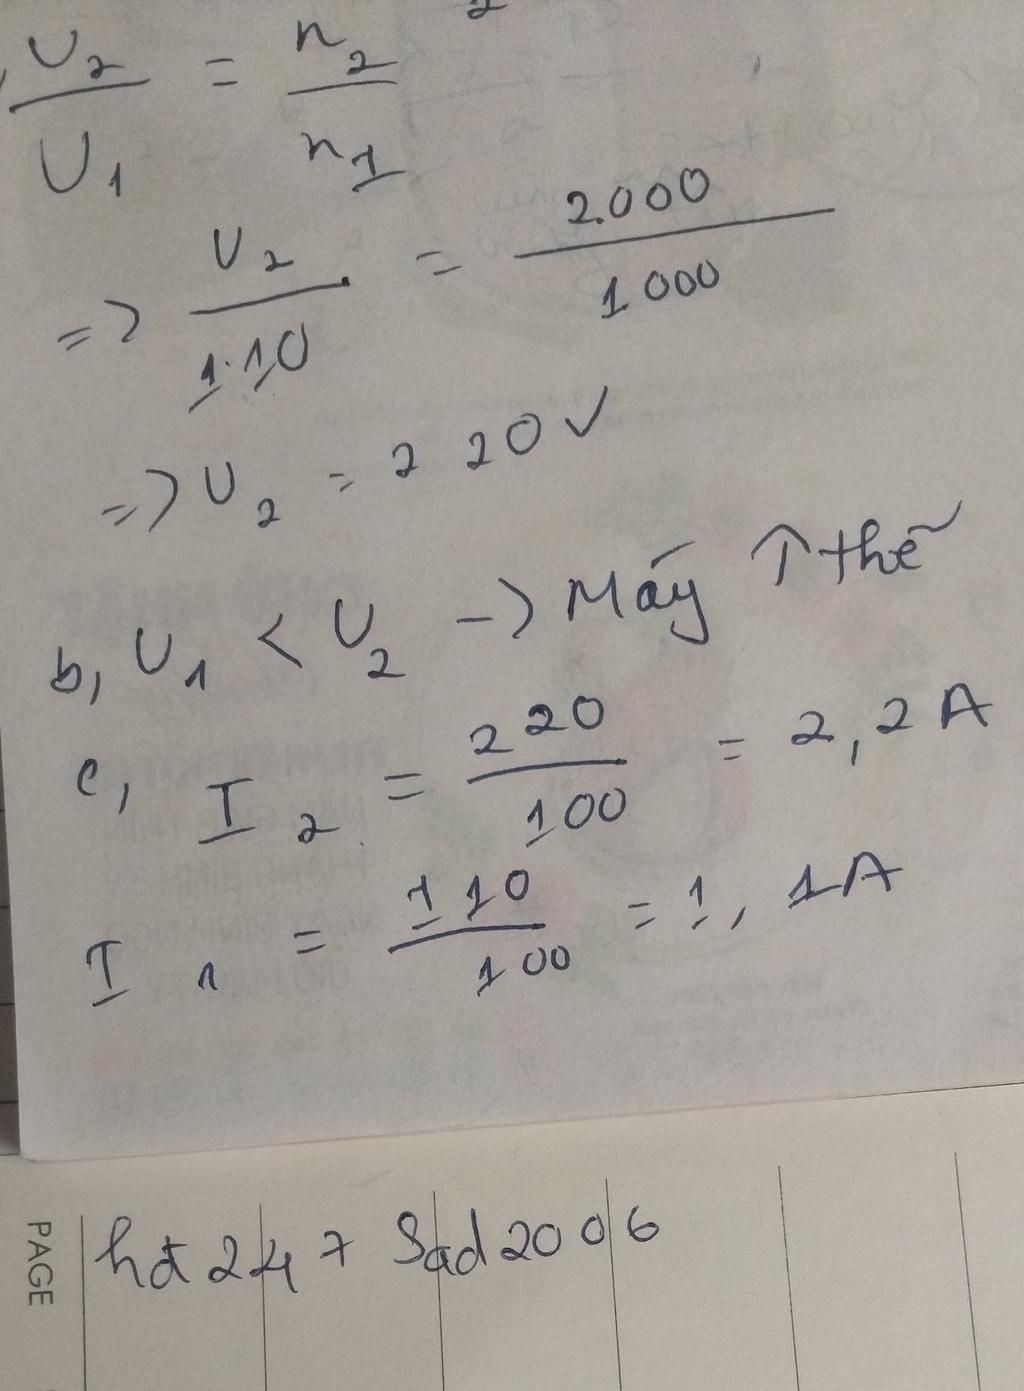 2
U₂/U₁ = n₂/n₁
=> U₂/110 = 2000/1000
=> U₂ = 220V
b, U₁ < U₂ -> Máy ↑ thế
c, I₂ = 220/100 = 2,2A
I₁ = 110/100 = 1,1A
PAGE
247 Sad2006